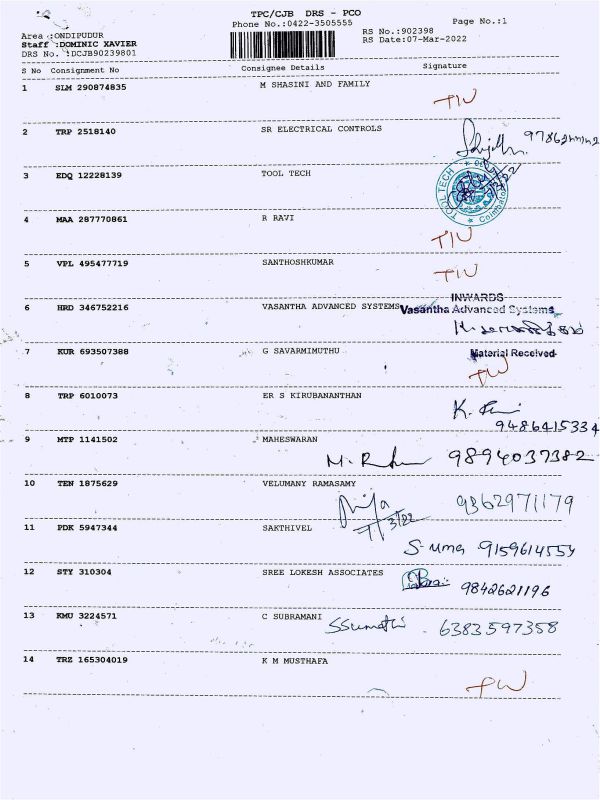 TPC/CJB DRS - PCO
Phone No.:0422-3505555
Page No.:1
Area :ONDIPUDUR
RS No.:902398
Staff :DOMINIC XAVIER
RS Date:07-Mar-2022
DRS No. :DCJB90239801
S No Consignment No Consignee Details Signature
1 SLM 290874835 M SHASINI AND FAMILY
2 TRP 2518140 SR ELECTRICAL CONTROLS
3 EDQ 12228139 TOOL TECH
TOOL TECH
Coimbatore
4 MAA 287770861 R RAVI
5 VPL 495477719 SANTHOSHKUMAR
INWARDS
6 HRD 346752216 VASANTHA ADVANCED SYSTEMS Vasantha Advanced Systems
7 KUR 693507388 G SAVARMIMUTHU Material Received
8 TRP 6010073 ER S KIRUBANANTHAN
9486415334
9 MTP 1141502 MAHESWARAN
9894037382
10 TEN 1875629 VELUMANY RAMASAMY
9362971179
11 PDK 5947344 SAKTHIVEL
S-uma 9159614554
12 STY 310304 SREE LOKESH ASSOCIATES
9842621196
13 KMU 3224571 C SUBRAMANI
SSumathi 6383597358
14 TRZ 165304019 K M MUSTHAFA